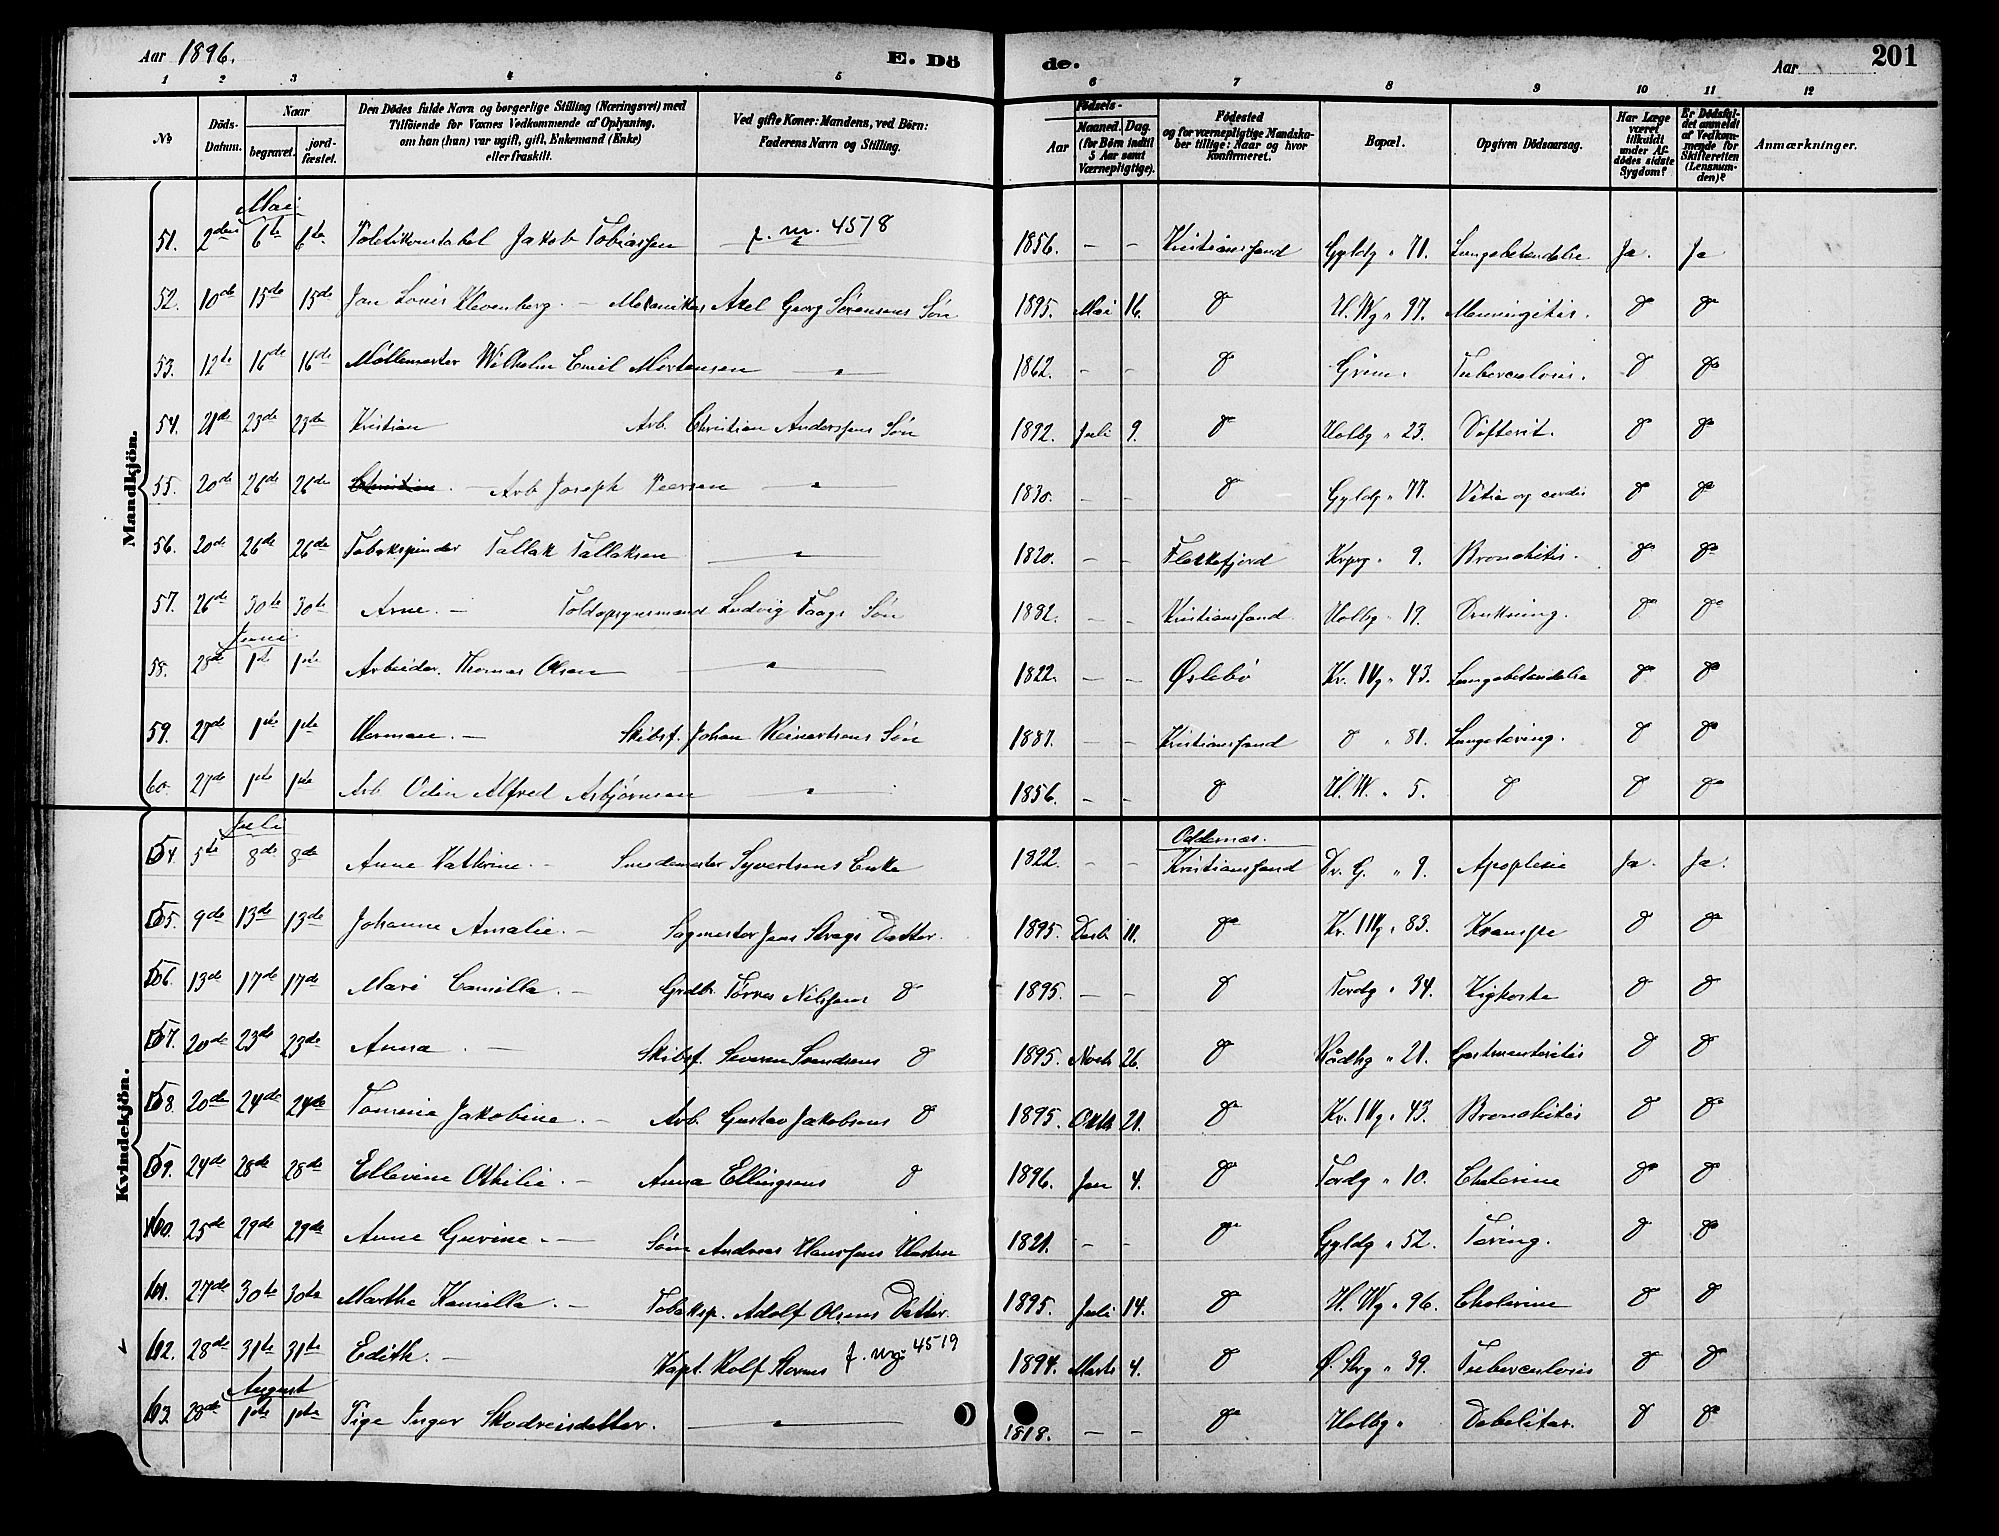 Aar 1896. E. Dö de. Aar 201
1 2 3 4 5 6 7 8 9 10 11 12
No Döds-Datum. Naar begravet. jord-fæstet. Den Dödes fulde Navn og borgerlige Stilling (Næringsvei) med Tilföiende for Voxnes Vedkommende af Oplysning, om han (hun) var ugift, gift, Enkemand (Enke) eller fraskilt. Ved gifte Koner: Mandens, ved Börn: Faderens Navn og Stilling. Födsels- Aar Maaned. Dag. (for Börn indtil 5 Aar samt Værnepligtige). Födested og for værnepligtige Mandska-ber tillige: Naar og hvor konfirmeret. Bopæl. Opgiven Dödsaarsag. Har Læge været tilkaldt under Af-dödes sidste Sygdom? Er Dödsfal-det anmeldt af Vedkom-mende for Skifteretten (Lensman-den)? Anmærkninger.
Mandkjön.
Mai
51. 2den 6te 6te Politikonstabel Jakob Tobiassen f. nr. 4518 1856. – – Kristianssand Gyldg " 71. Lungebetændelse Ja. Ja
52. 10de 15de 15de Jan Louis Klevenberg. – Mekaniker Axel Georg Sørensens Søn 1895. Mai 16. d° V. Wg " 97. Menningitis. d° d°
53. 12te 16de 16de Møllemester Wilhelm Emil Mortensen " 1862. – – d° Grim. Tuberculosis. d° d°
54. 21de 23de 23de Kristian Arb. Christian Anderssens Søn 1892. Juli 9. d° Holbg " 23. Difterit. d° d°
55. 20de 26de 26de Christian. – Arb Joseph Peersen " 1830. – – d° Gyldg " 77. Vitia og cordis d° d°
56. 20de 26de 26de Tobakspinder Tallak Tallaksen " 1820. – – Flekkefjord Krprg " 9. Bronchitis. d° d°
57. 26de 30te 30te Arne. – Toldopsynsmand Ludvig Faags Søn 1892. – – Kristianssand Holbg " 19. Drukning. d° d°
Juni
58. 28de 1ste 1ste Arbeider. Thomas Olsen " 1822. – – Øslebø Kr. IVg " 43. Lungebetændelse d° d°
59. 27de 1ste 1ste Herman. – Skibsf. Johan Reinertsens Søn 1887. – – Kristianssand d° " 81. Lungetæring. d° d°
60. 27de 1ste 1ste Arb Odin Alfred Asbjørnsen " 1856. – – d° V. W. " 5. d° d° d°
Kvindekjön.
Juli
54. 5te 8de 8de Anne Kathrine. – Smedemester Syvertsens Enke 1822. – – Oddernæs. Kristianssand Dr. G. " 9. Apoplexie Ja. Ja.
55. 9de 13de 13de Johanne Amalie. – Sagmester Jens Strags Datter. 1895. Decb 11. d° Kr. IVg " 83. Krampe d° d°
56. 13de 17de 17de Mari Camilla. – Grdb. Tørres Nilssens d° 1895. – – d° Tordg " 34. Kighoste d° d°
57. 20de 23de 23de Anna. – Skibsf. Severin Svendsens d° 1895. Novb 26. d° Rådhg " 21. d° d°
58. 20de 24de 24de Tomine Jakobine. – Arb. Gustav Jakobsens d° 1895. Oktb 21. d° Kr. IVg " 43. Bronchitis d° d°
59. 24de 28de 28de Ellevine Othilie. – Anna Ellingsens d° 1896. Jan 4. d° Tordg " 10. Cholerine d° d°
60. 25de 29de 29de Anne Gurine. – Søm Andreas Hanssens Hustru 1821. – – d° Gyldg " 52. Tæring. d° d°
61. 27de 30te 30te Martha Kamilla. – Tobaksp. Adolf Olsens Datter. 1895. Juli 14. d° V. Wg " 96. Cholerine d° d°
62. 28de 31te 31te Edith. – Kapt. Rolf Storms f. nr. 4519 1894. Marts 4. d° Ø. Strg " 39. Tuberculosis d° d°
August
63. 28de 1ste 1ste Pige Inger Skodreisdatter. " 1818. – – d° Holbg " Debelitas. d° d°